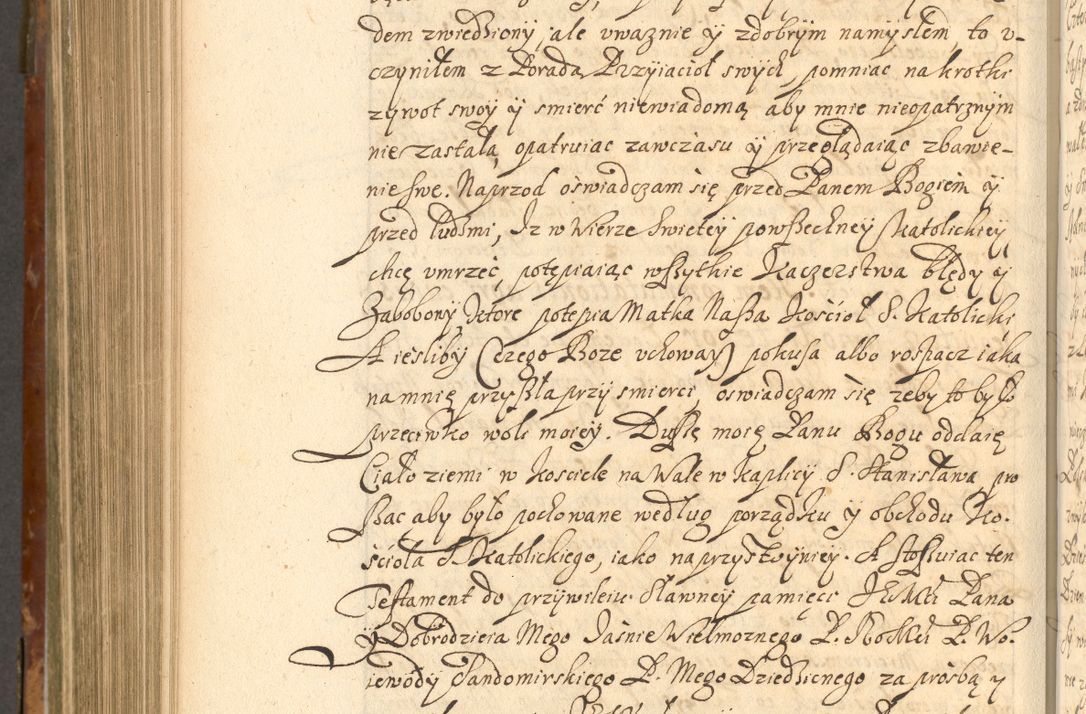 dem zwiedziony, ale vwaznie y zdobrym namysłem to v-
czyniłem z Poradą Przyiacioł swych, pomniac na krotki
zywot swoy y smierć niewiadomą, aby mnie nieopatrznym
nie zastała, opatruiac zawczasu y przeglądaiąc zbawie-
nie swe. Naprzod oświadczam się przed Panem Bogiem y
przed ludzmi, Iz w Wierze Swietey powszechney Katolickiey
chcę vmrzeć, potępiaiąc wszytkie Kaczerstwa błędy y
Zabobony, ktore potępia Matka Nasza Kościoł S. Katolicki
A iesliby (czego Boze vchoway) pokusa albo rospacz iaka
na mnię przyszła przy smierci, oswiadczam się zeby to było
przeciwko woli moiey. Duszę moię Panu Bogu oddaię
Ciało ziemi w Kosciele na Wale w Kaplicy S. Stanisława, pro
szac aby było pochowane według porządku y obchodu Ko-
ścioła S. Katolickiego, iako naprzystoyniey. A stosuiac ten
Testament do przywileiu Sławney pamięci JEMći Pana
y Dobrodzieia Mego Jaśnie Wielmoznego P. Kostki P. Wo-
iewody Sandomirskiego P. Mego Dziedzicnego za prośbą y